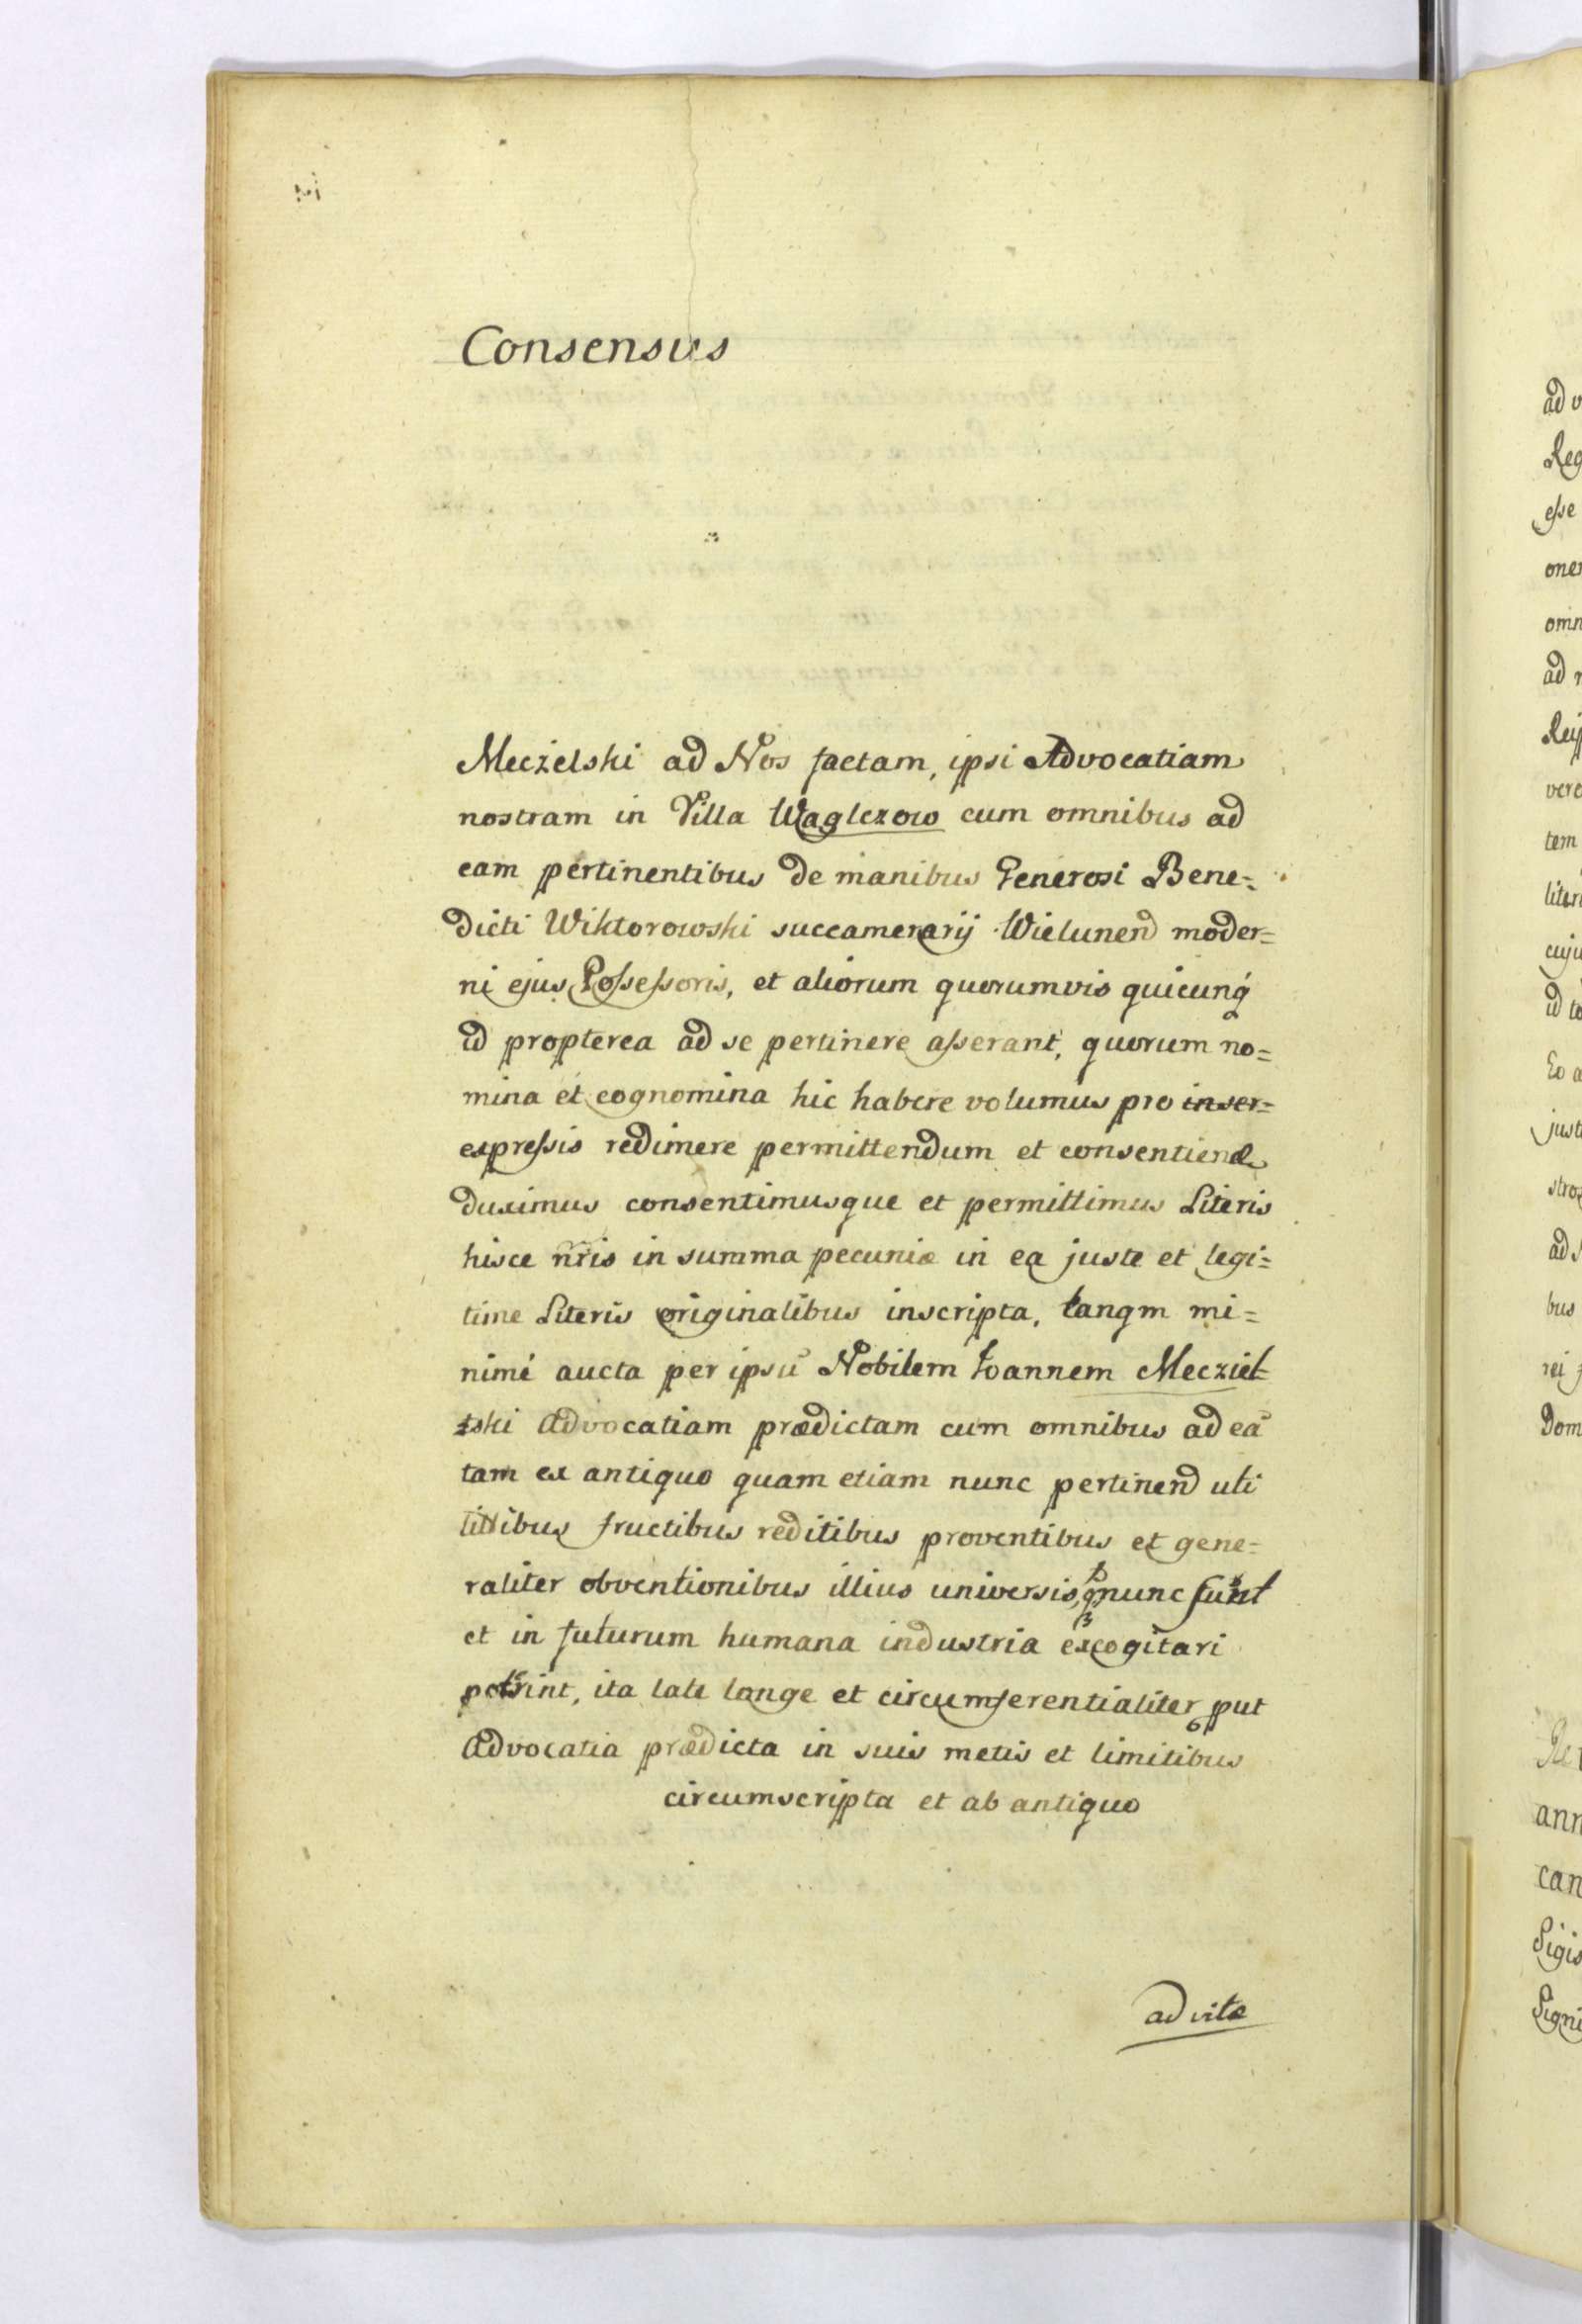 Consensus
Meczelski ad Nos factam, ipsi Advocatiam
nostram in Villa Waglczow cum omnibus ad
eam pertinentibus de manibus Generosi Bene=
dicti Wiktorowski succamerarij Wielunend moder=
ni ejus Possessoris, et aliorum quorumvis quicunq́
id propterea ad se pertinere asserant, quorum no=
mina et cognomina hic habere volumus pro inser=
expressis redimere permittendum et consentiend
duximus consentimusque et permittimus Literis
hisce nr̃is in summa pecuniæ in ea juste et legi=
time Literis originalibus inscripta, tanqm mi=
nimé aucta per ipsū Nobilem Ioannem Mecziel=
ski Advocatiam prædictam cum omnibus ad eā
tam ex antiquo quam etiam nunc pertinend uti
litibus fructibus reditibus proventibus et gene=
raliter obventionibus illius universis, nunc sunt
et in futurum humana industria excogitari
poterint, ita late longe et circumferentialiter put
Advocatia prædicta in suis metis et limitibus
circumscripta et ab antiquo
ad vitæ
ad v
Reg
esse
one
omn
ad
vere
tem
liter
cuju
Eo a
just
ad
bus
rei
Dom
ann
can
Sigis
Signi